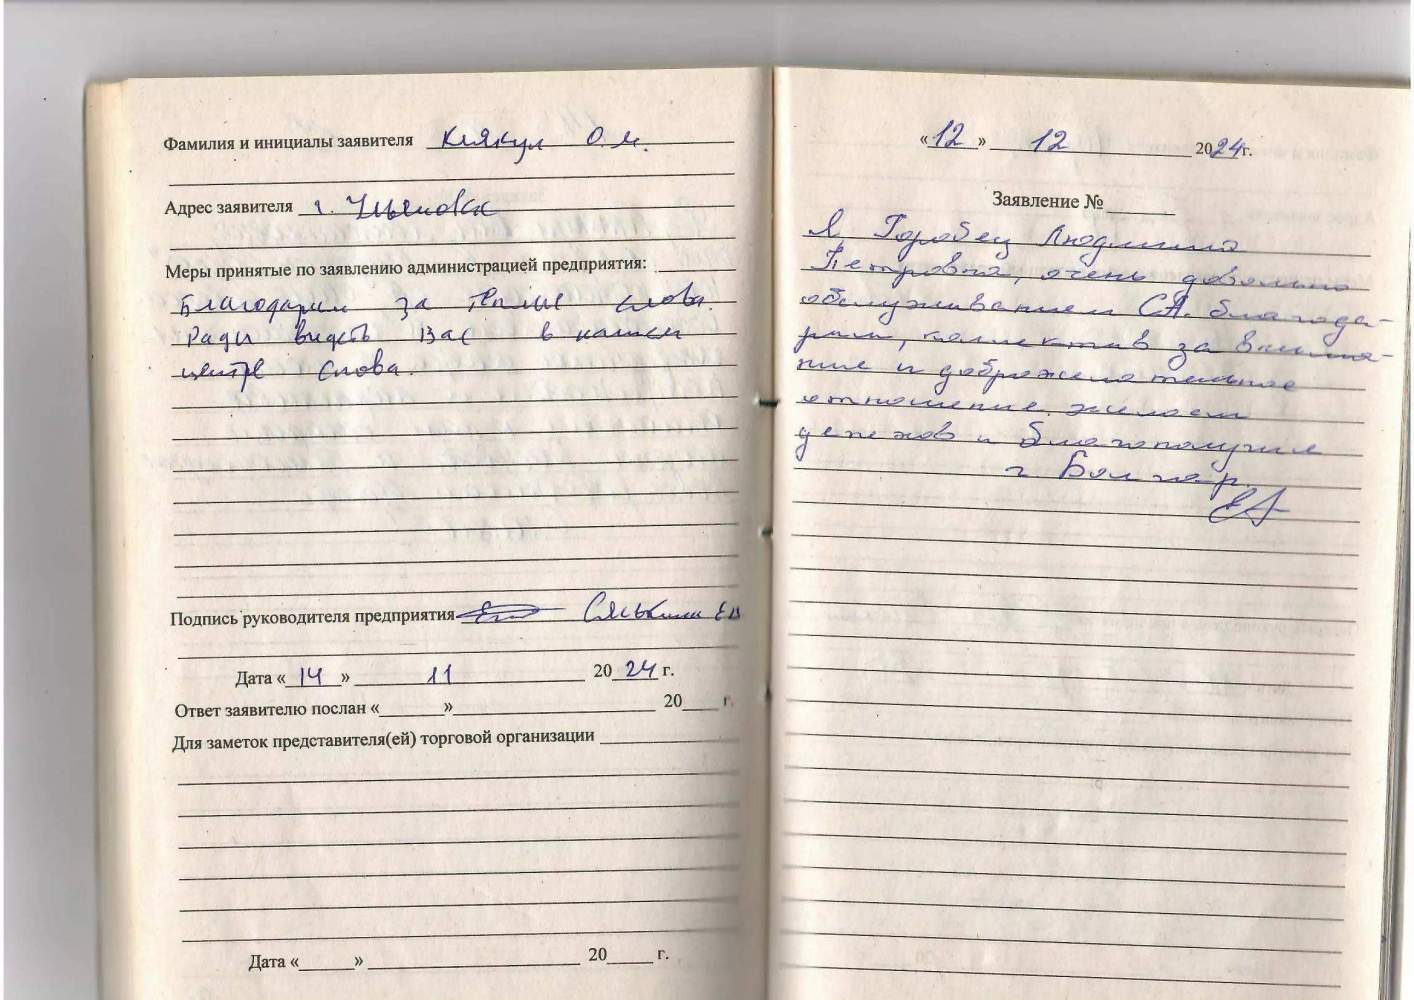 Фамилия и инициалы заявителя Клякул О.М.
Адрес заявителя г. Ульяновск
Меры принятые по заявлению администрацией предприятия:
Благодарим за теплые слова.
Рады видеть Вас в нашем
центре снова.
Подпись руководителя предприятия
Дата «14» 11 2024 г.
Ответ заявителю послан «    » 20    г.
Для заметок представителя(ей) торговой организации
Дата «    » 20    г.
«12» 12 2024г.
Заявление №
Я Горобец Людмила
Петровна, очень довольна
обслуживанием СА. благода-
рим, коллектив за внима-
ние и доброжелательное
отношение. желаем
успехов и благополучия
г Болгар.